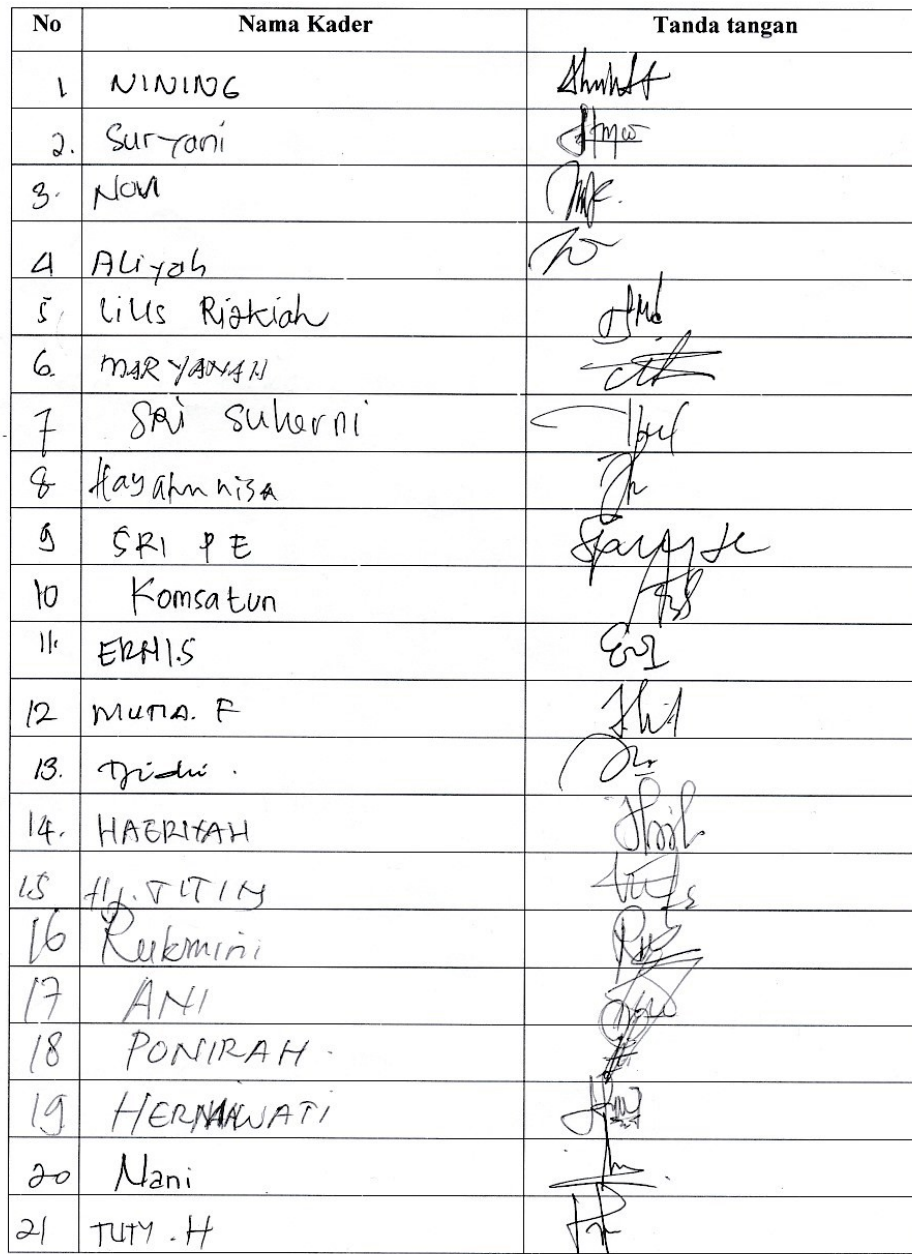 No Nama Kader Tanda tangan
1 NINING
2. Suryani
3. Novi
4 Aliyah
5 Lilis Rizkiah
6. MARYANAH
7 Sri Suherni
8 Hayatun nisa
9 SRI PE
10 Komsatun
11. ERNI.S
12 MUTIA. F
13.
14. HAERIYAH
15 Hj. TITIN
16 Rukmini
17 ANI
18 PONIRAH.
19 HERNAWATI
20 Nani
21 TUTY . H